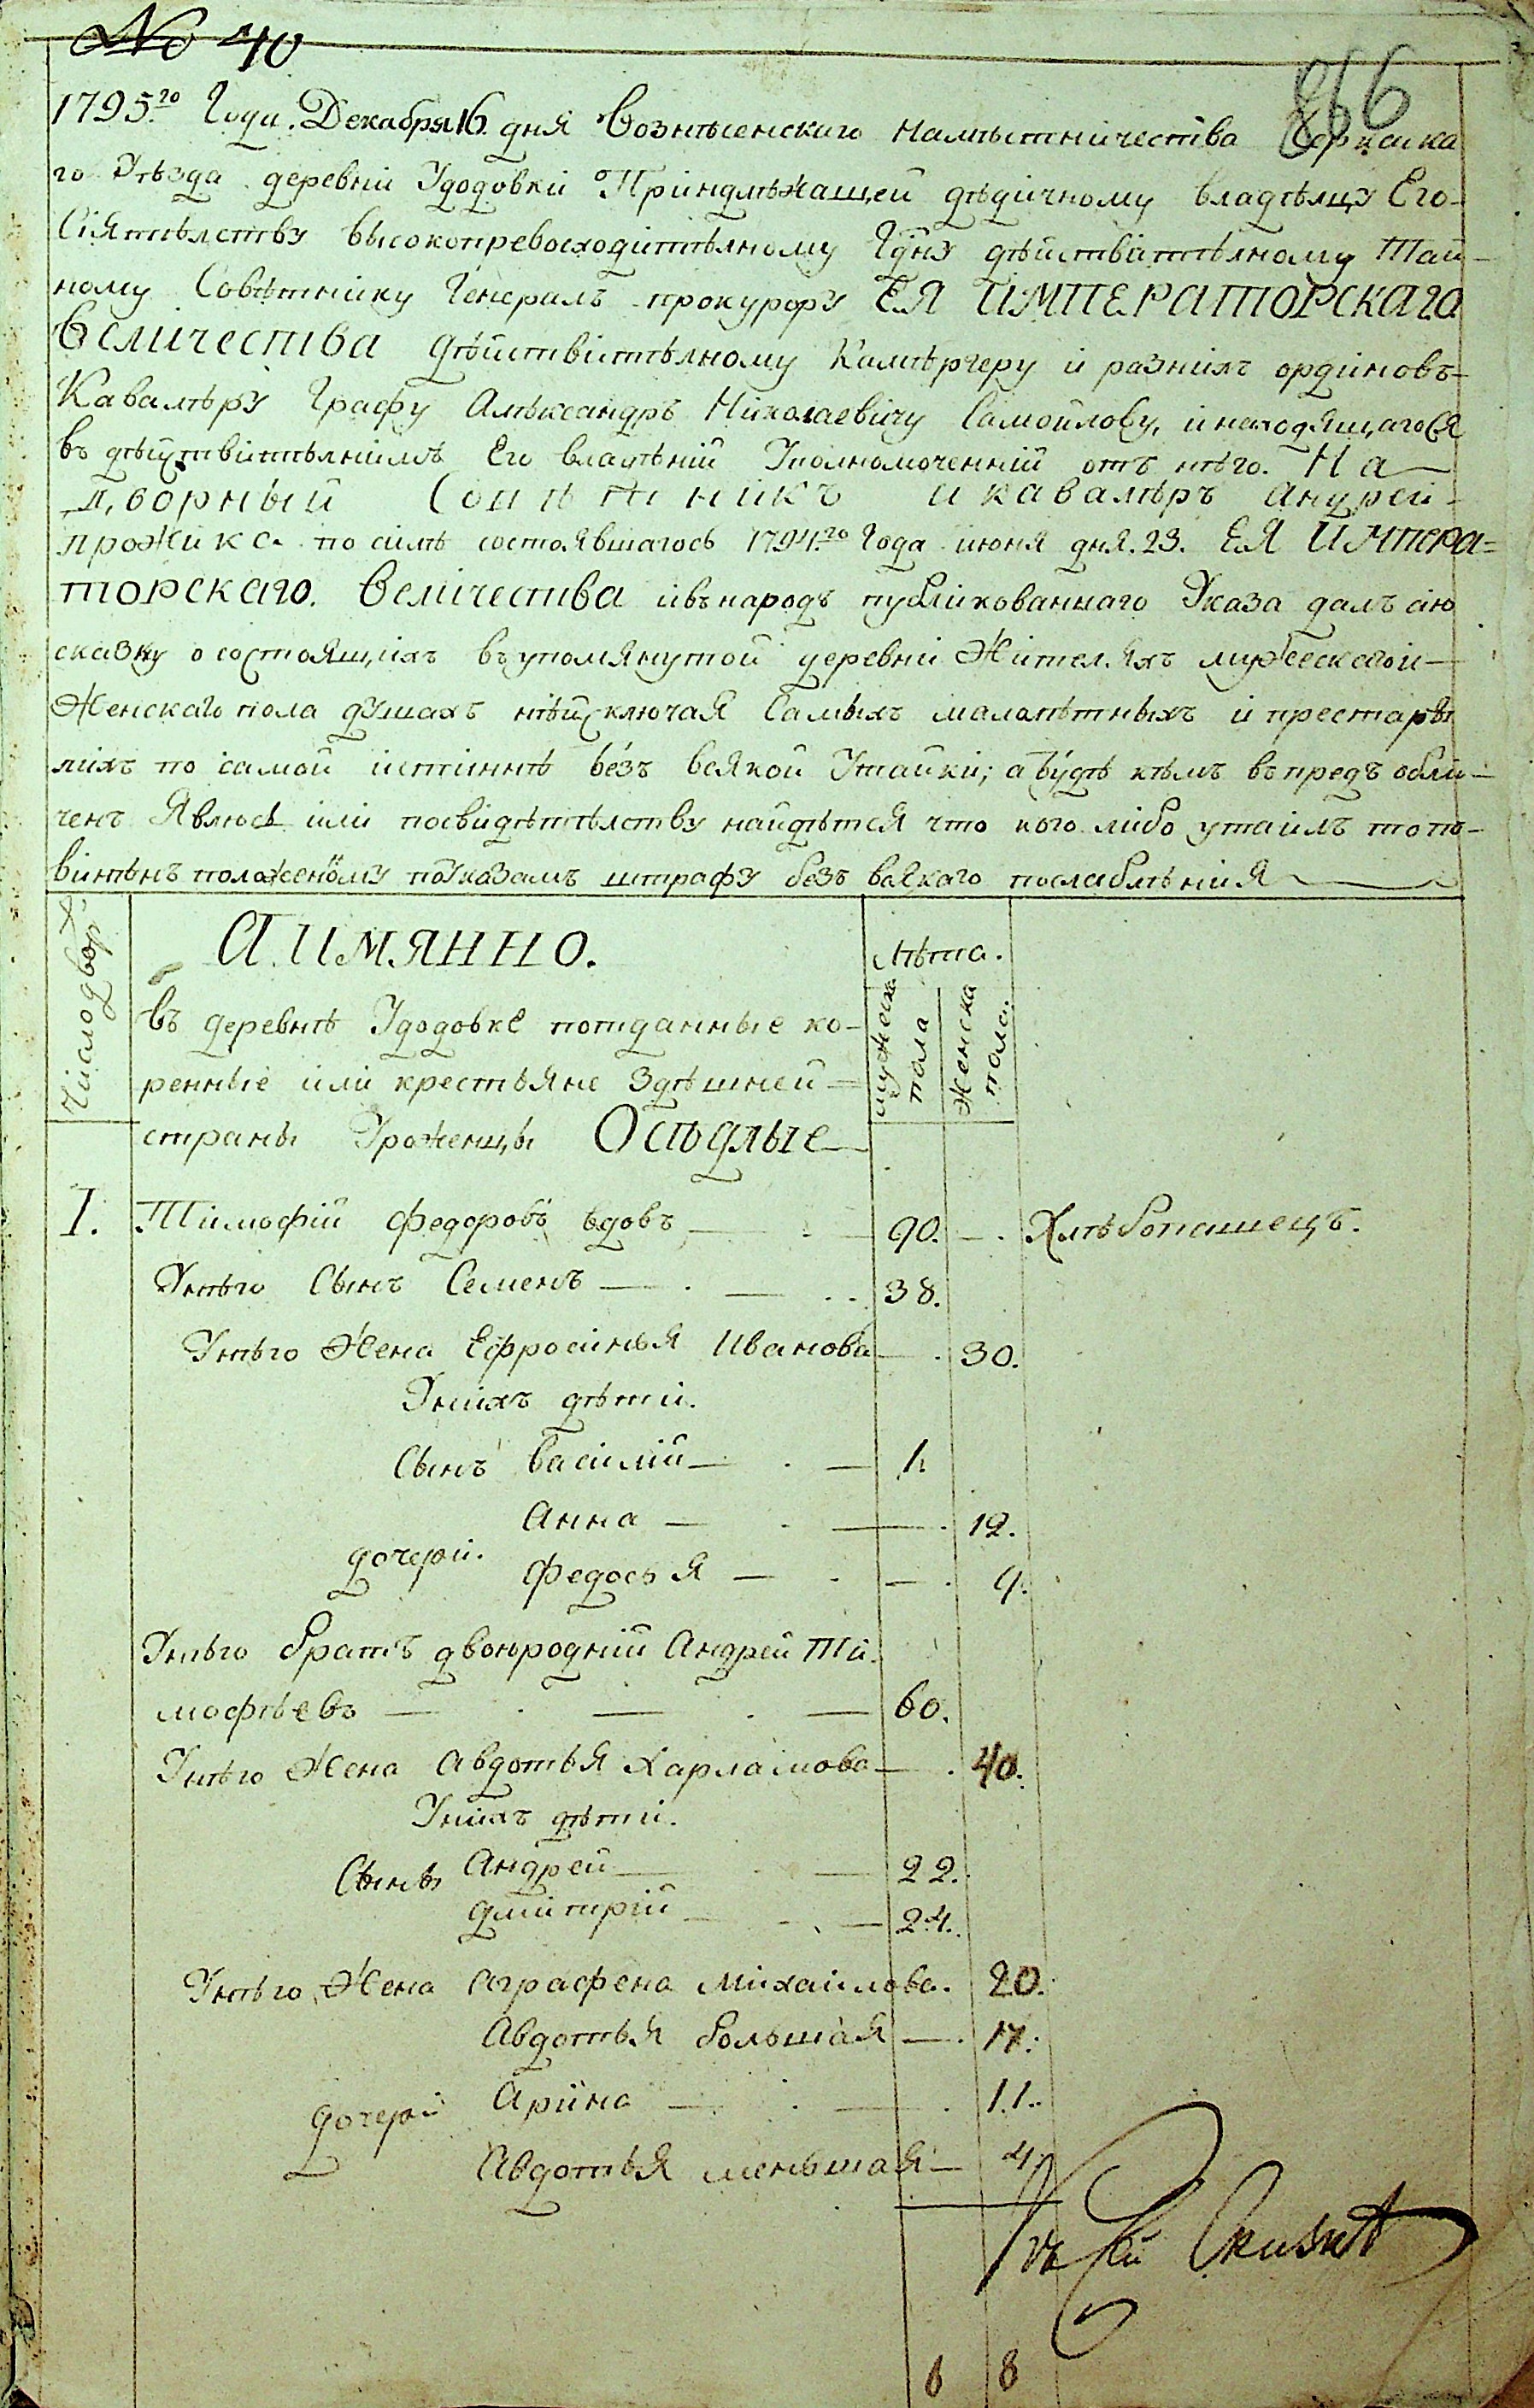 № 40
866
1795го Года. Декабря 16 дня Вознѣсенскаго намѣстничества Черкаска
го Уѣзда деревни Удодовки Принадлѣжащей дѣдичному владѣлцу Его
Сіятѣлству высокопревосходитѣлному Гдну дѣйствитѣлному Тай-
ному Совѣтнику Генералъ прокурору ЕЯ ИМПЕРАТОРСКАГО
Величества дѣйствитѣлному Камѣргеру и разнихъ ординовъ
Кавалѣру Графу Алѣксандръ Николаевичу Самойлову, и находящагося
въ дѣйствитѣлнимъ Его владѣніи Уполномоченній отъ нѣго. На
дворный Совѣтникъ и кавалѣръ Андрей
по силѣ состоявшагось 1794го Года июня дня. 23. ЕЯ Импера=
торскаго. Величества и въ народъ публикованнаго Указа далъ сію
сказку о состоящихъ въ упомянутой деревни Жителяхъ мужескаго и
Женскаго пола душахъ нѣйсключая самыхъ малолѣтныхъ и престарѣ
лихъ по самой истиннѣ безъ всякой Утайки; а будѣ кѣмъ въпредъ обли-
ченъ Явлюсь или посвидѣтѣлству найдѣтся что кого либо утаилъ то по-
винѣнъ положеному поУказамъ штрафу безъ всякаго послаблѣния
Число двор.
А ИМЯННО.
Лѣта.
мужеска пола
Женска пола.
въ деревнѣ Удодовке подданные ко-
ренные или крестьяне здѣшней
страны Уроженцы Осѣдлые
1. Тимофій Федоровъ вдовъ — 90. — Хлѣбопашецъ.
Унѣго Сынъ Семенъ — 38.
Унѣго Жена Ефросинья Иванова — 30.
Унихъ дѣти.
Сынъ Василий — 1.
Анна — 12.
дочери.
Федосья — 9.
Унѣго братъ двоюродній Андрей Ти
мофѣевъ — 60.
Унѣго Жена Авдотья Харламова — 40.
Унихъ дѣти.
Сыны Андрей — 22.
Дмитрій — 24.
Унѣго Жена Аграфена Михайлова. 20.
Авдотья большая — 17.
дочери Арина — 11.
Авдотья меньшая — 4.
6 8